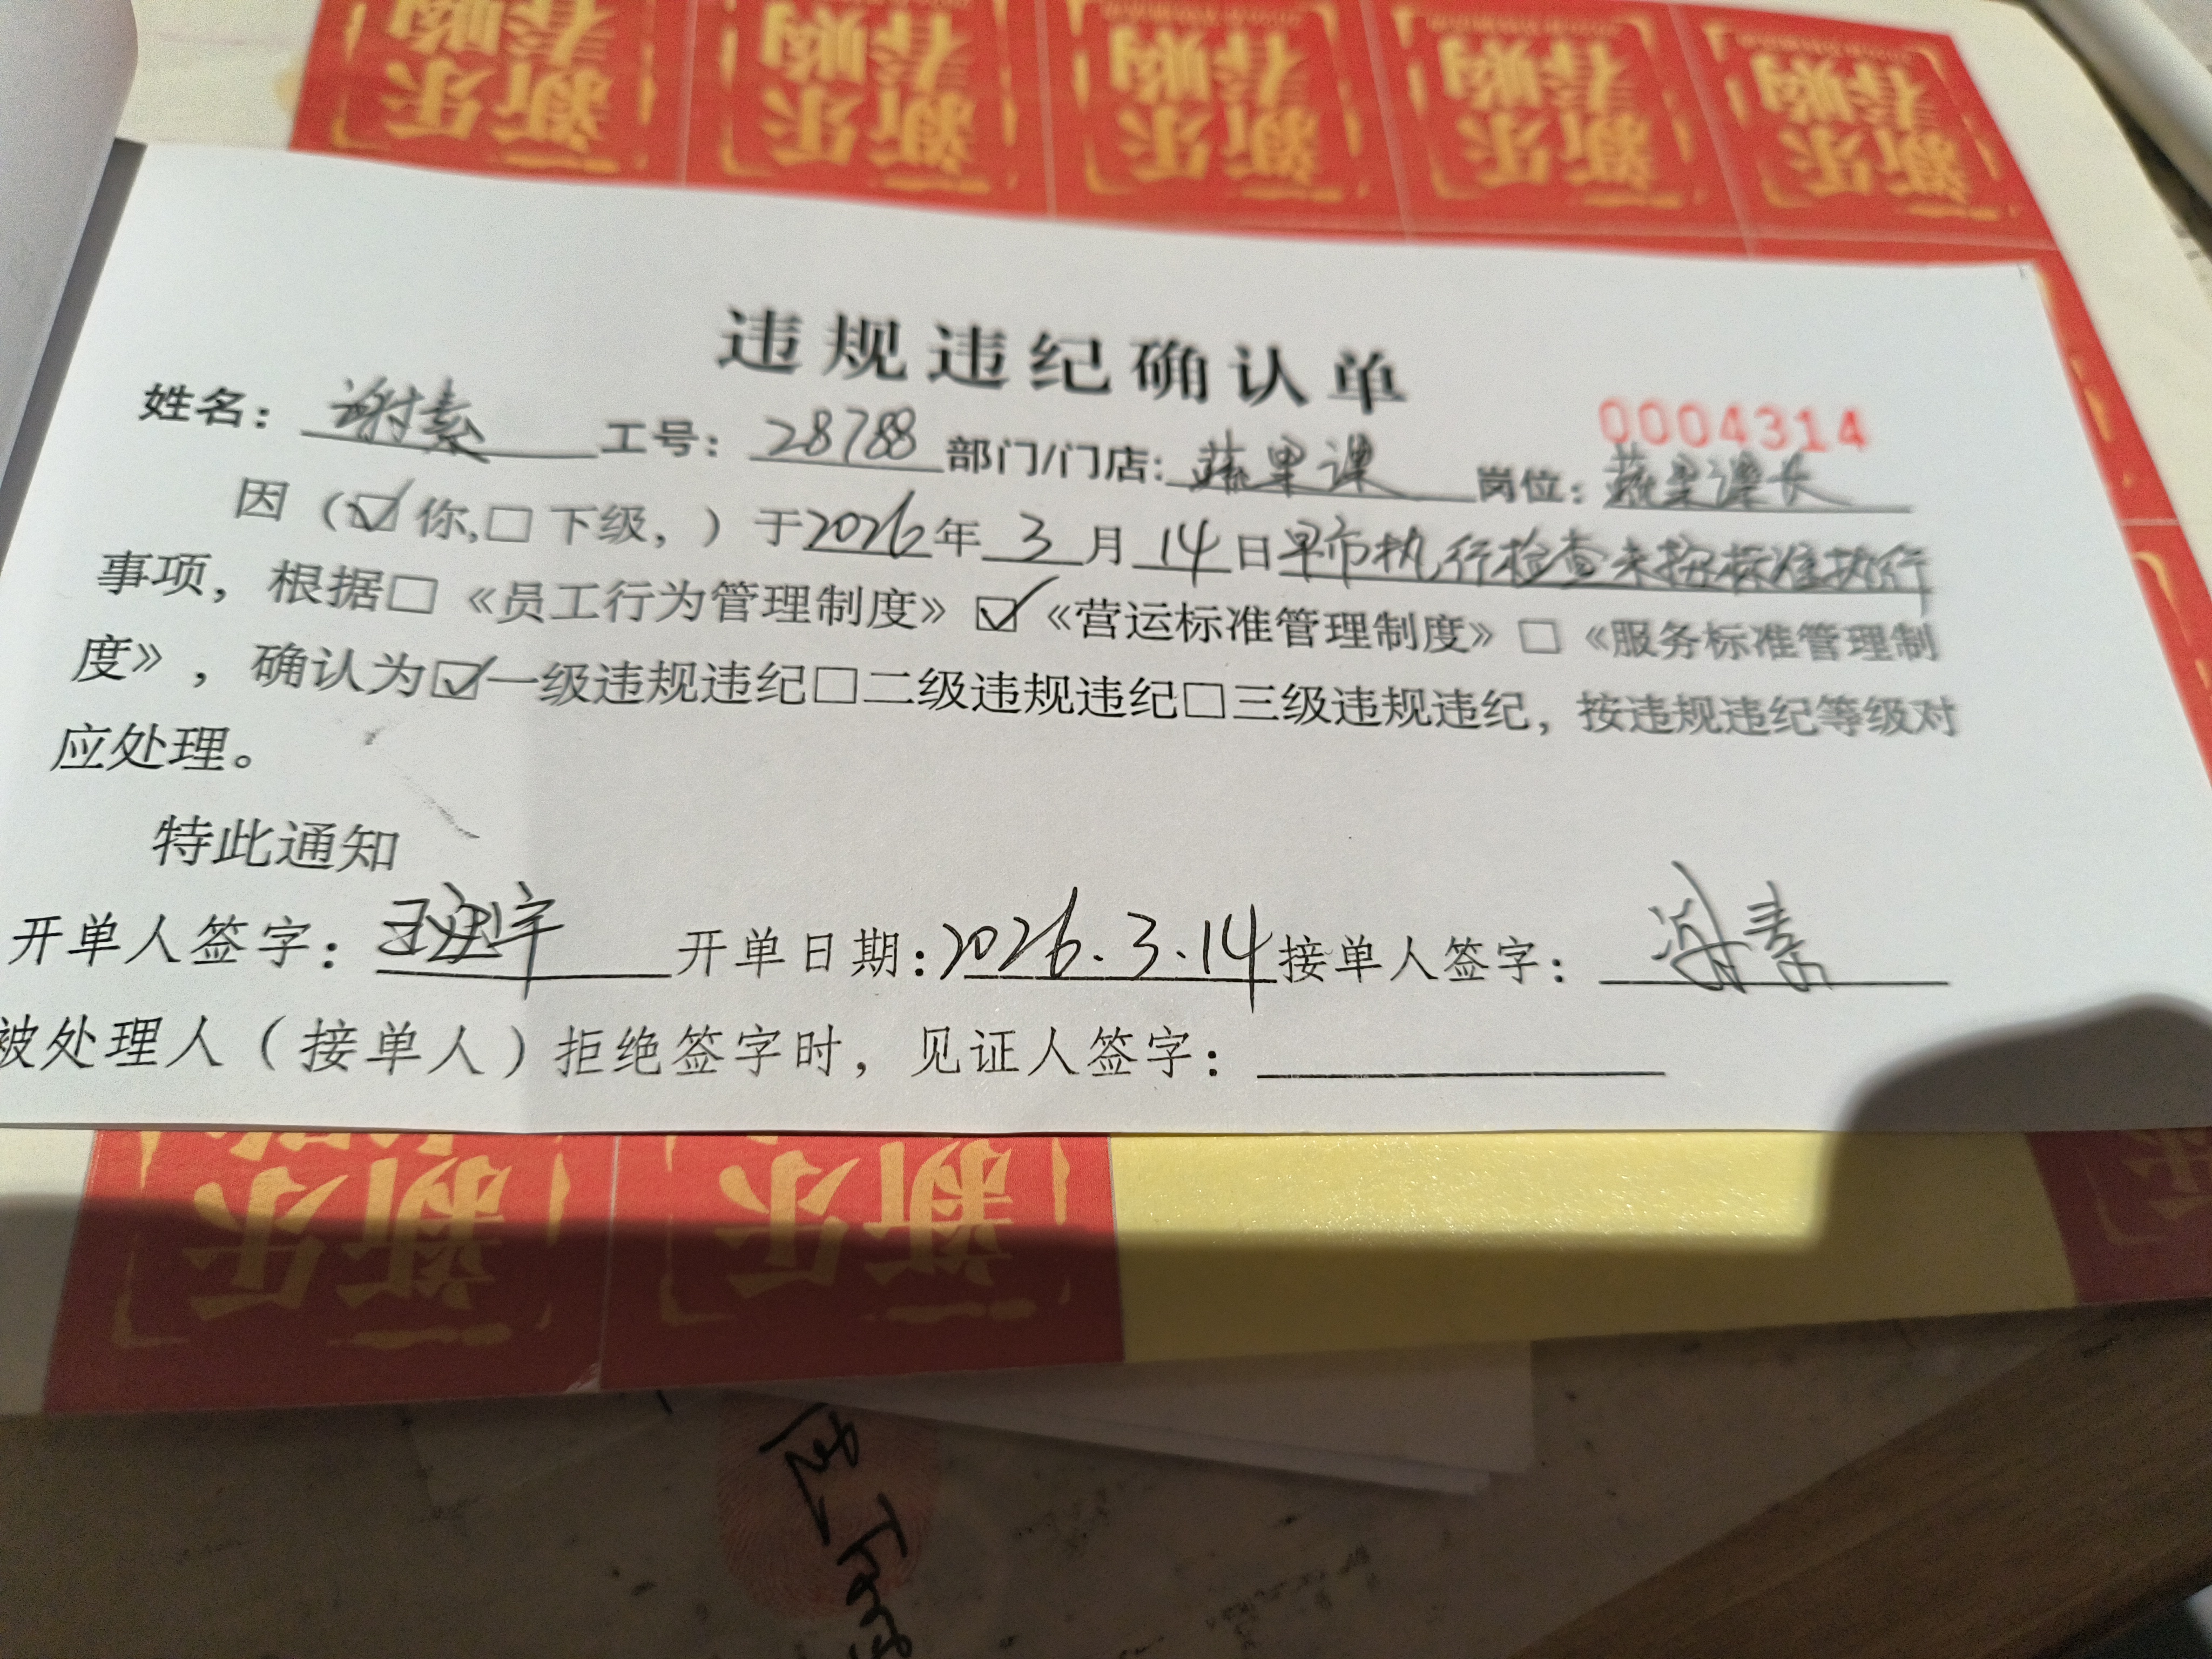 违规违纪确认单
0004314
姓名：谢素 工号：28788 部门/门店：蔬果课 岗位：蔬果课长
因（☑你,☐下级，）于2026年3月14日早市执行检查未按标准执行
事项，根据☐《员工行为管理制度》☑《营运标准管理制度》☐《服务标准管理制
度》，确认为☑一级违规违纪☐二级违规违纪☐三级违规违纪，按违规违纪等级对
应处理。
特此通知
开单人签字： 开单日期:2026.3.14 接单人签字：谢素
被处理人（接单人）拒绝签字时，见证人签字：
新春
乐购
新春
乐购
新春
乐购
新春
乐购
新春
乐购
新
乐
新
乐